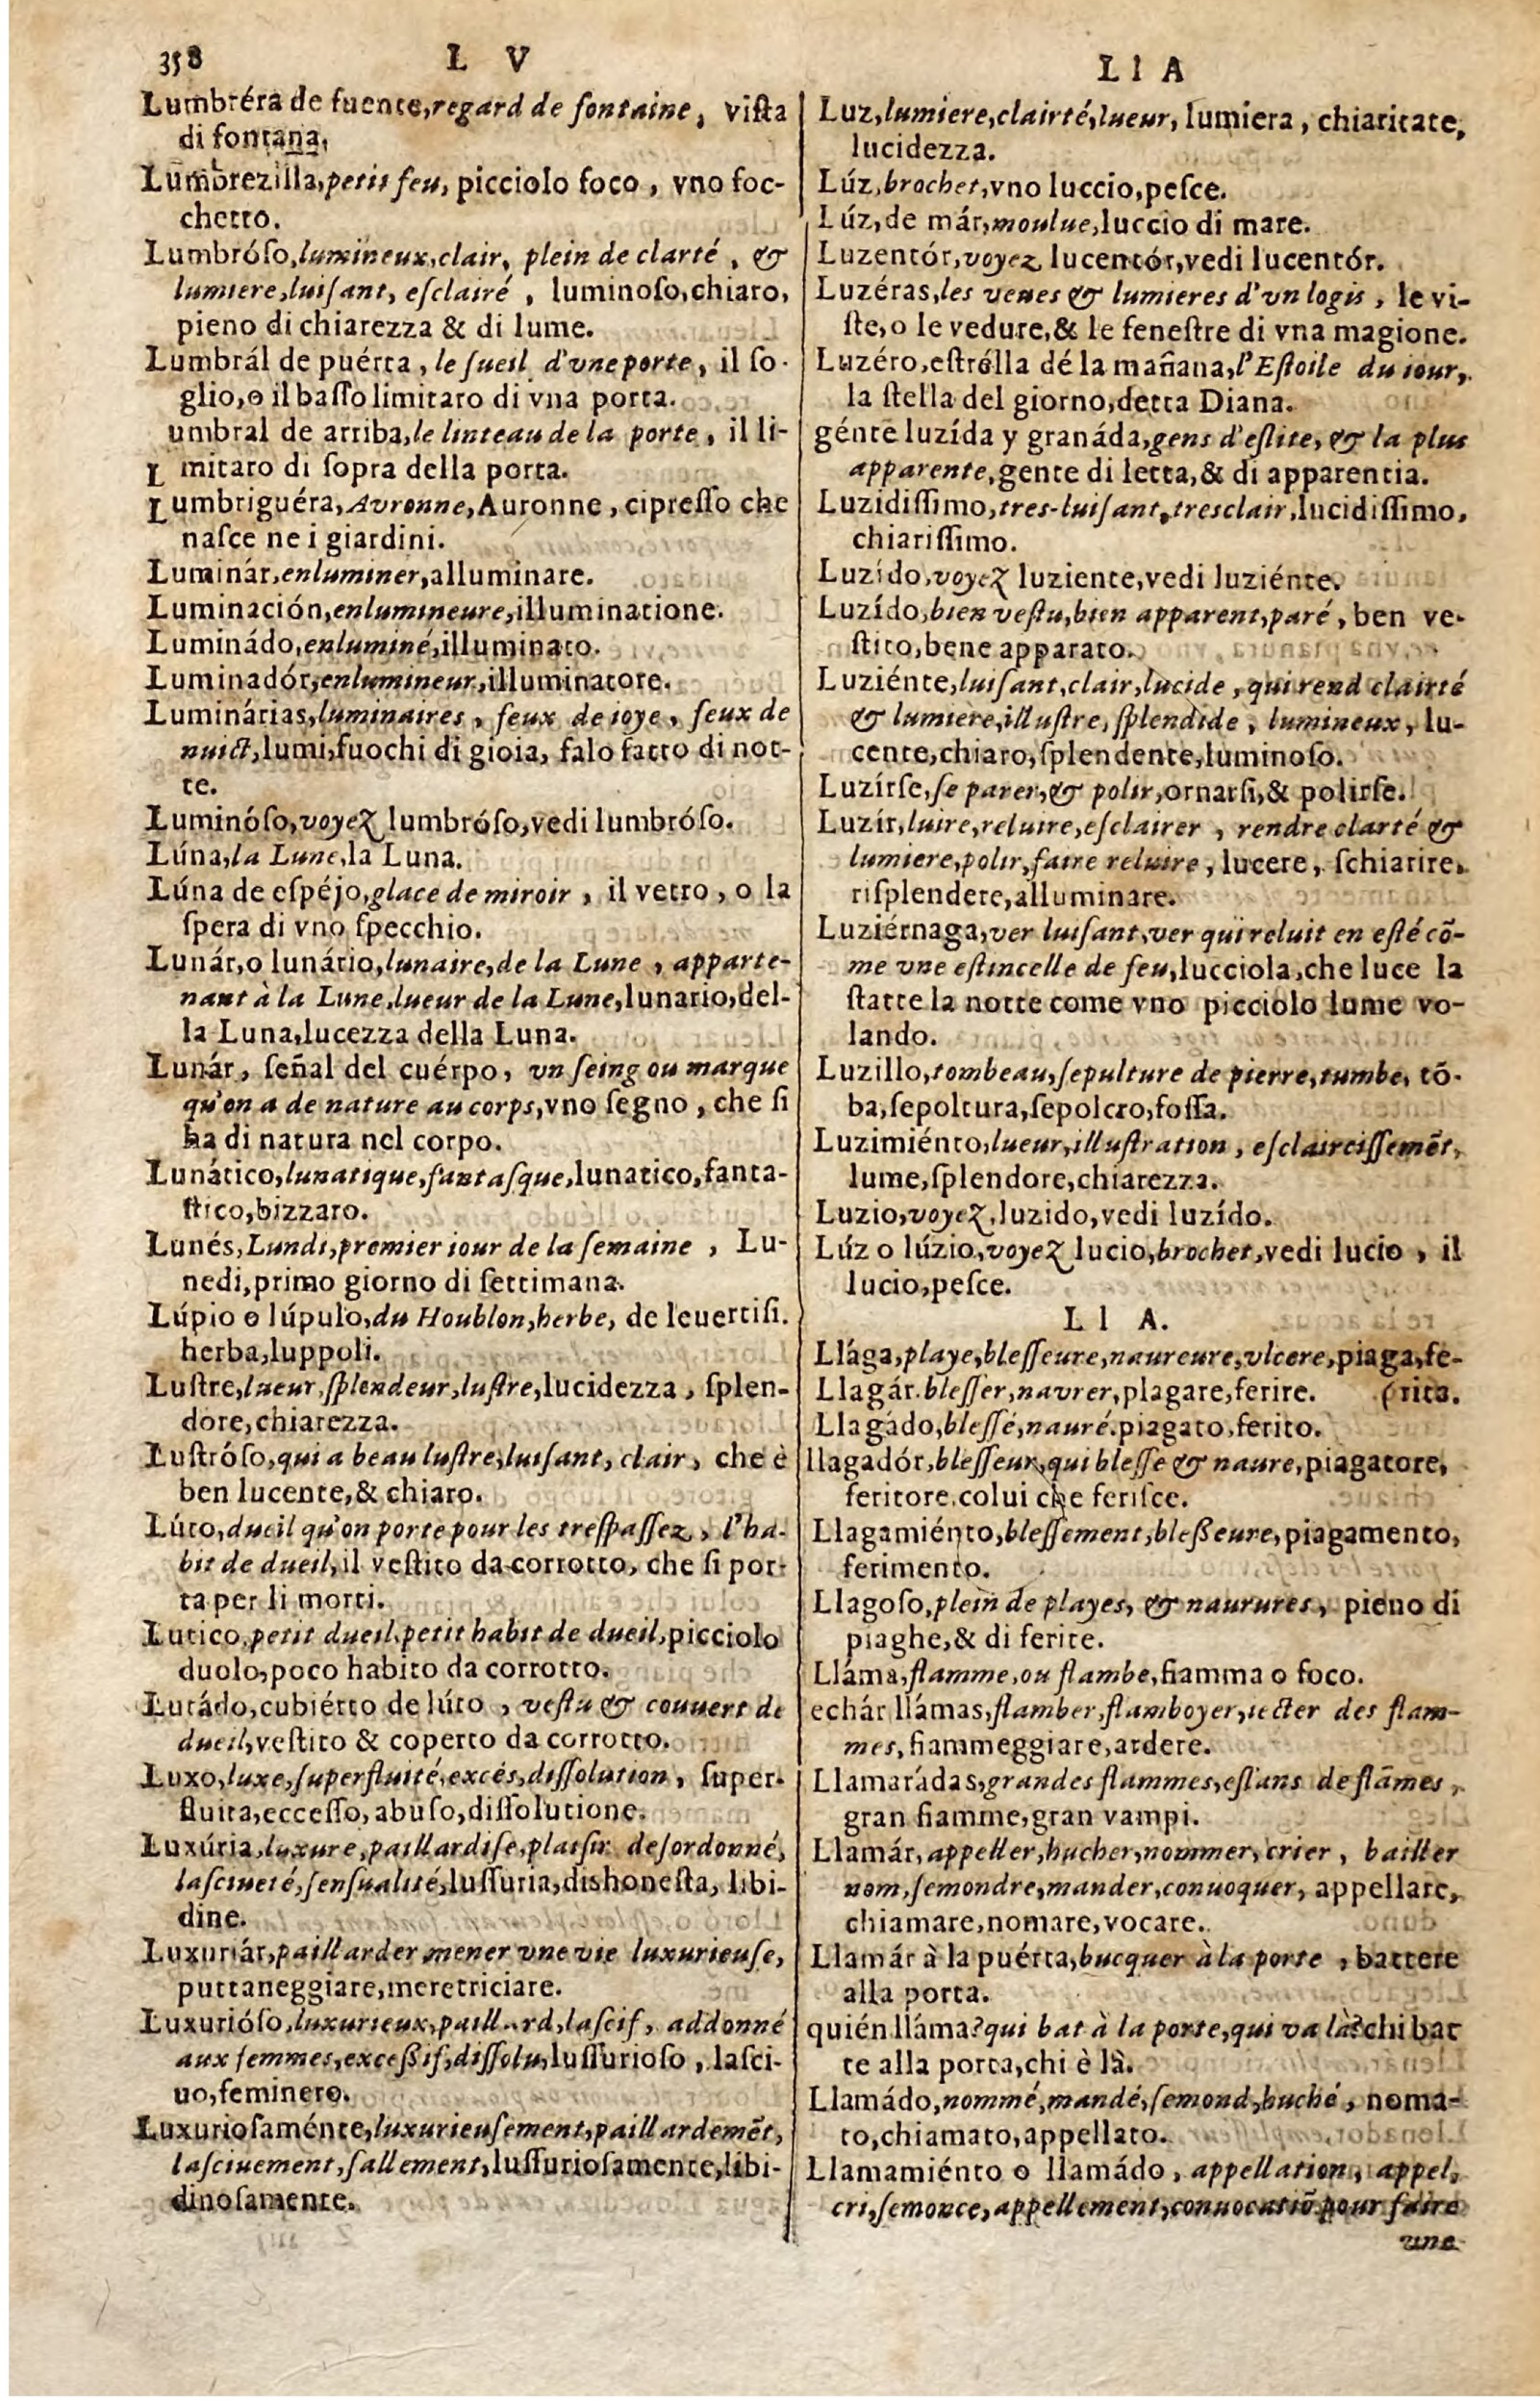 358
L V
Lumbréra de fuente, regard de fontaine, viſta
di fontana.
Lumbrezilla, petit feu, picciolo foco, vno foc-
chetto.
Lumbróſo, lumineux, clair, plein de clarté, &
lumiere, luiſant, eſclairé, luminoſo, chiaro,
pieno di chiarezza & di lume.
Lumbrál de puérta, le ſueil d'vne porte, il ſo-
glio, o il baſſo limitaro di vna porta.
umbral de arriba, le linteau de la porte, il li-
L mitaro di ſopra della porta.
Lumbriguéra, Avronne, Auronne, cipreſſo che
naſce ne i giardini.
Luminár, enluminer, alluminare.
Luminación, enlumineure, illuminatione.
Luminádo, enluminé, illuminato.
Luminadór, enlumineur, illuminatore.
Luminárias, luminaires, feux de ioye, feux de
nuict, lumi, fuochi di gioia, falo fatto di not-
te.
Luminóſo, voyez lumbróſo, vedi lumbróſo.
Lúna, la Lune, la Luna.
Lúna de eſpéjo, glace de miroir, il vetro, o la
ſpera di vno ſpecchio.
Lunár, o lunário, lunaire, de la Lune, apparte-
nant à la Lune, lueur de la Lune, lunario, del-
la Luna, lucezza della Luna.
Lunár, ſeñal del cuérpo, vn ſeing ou marque
qu'on a de nature au corps, vno ſegno, che ſi
ha di natura nel corpo.
Lunático, lunatique, fantaſque, lunatico, fanta-
ſtico, bizzaro.
Lunés, Lundi, premier iour de la ſemaine, Lu-
nedi, primo giorno di ſettimana.
Lúpio o lúpulo, du Houblon, herbe, de leuertiſi.
herba, luppoli.
Luſtre, lueur, ſplendeur, luſtre, lucidezza, ſplen-
dore, chiarezza.
Luſtróſo, qui a beau luſtre, luiſant, clair, che è
ben lucente, & chiaro.
Lúto, dueil qu'on porte pour les treſpaſſez, l'ha-
bit de dueil, il veſtito da corrotto, che ſi por-
ta per li morti.
Lutico, petit dueil, petit habit de dueil, picciolo
duolo, poco habito da corrotto.
Lutádo, cubiérto de lúto, veſtu & couuert de
dueil, veſtito & coperto da corrotto.
Luxo, luxe, ſuperfluité, excés, diſſolution, ſuper-
fluita, ecceſſo, abuſo, diſſolutione.
Luxúria, luxure, paillardiſe, plaiſir deſordonné,
laſciueté, ſenſualité, luſſuria, dishoneſta, libi-
dine.
Luxuriár, paillarder, mener vne vie luxurieuſe,
puttaneggiare, meretriciare.
Luxurióſo, luxurieux, paillard, laſcif, addonné
aux femmes, exceßif, diſſolu, luſſurioſo, laſci-
uo, feminero.
Luxurioſaménte, luxurieuſement, paillardemēt,
laſciuement, ſallement, luſſurioſamente, libi-
dinoſamente.
Ll A
Luz, lumiere, clairté, lueur, lumiera, chiaritate,
lucidezza.
Lúz, brochet, vno luccio, peſce.
Lúz, de már, moulue, luccio di mare.
Luzentór, voyez lucentór, vedi lucentór.
Luzéras, les veues & lumieres d'vn logis, le vi-
ſte, o le vedure, & le feneſtre di vna magione.
Luzéro, eſtrélla dé la mañana, l'Eſtoile du iour,
la ſtella del giorno, detta Diana.
génte luzída y granáda, gens d'eſlite, & la plus
apparente, gente di letta, & di apparentia.
Luzidiſſimo, tres-luiſant, tresclair, lucidiſſimo,
chiariſſimo.
Luzído, voyez luziente, vedi luziénte.
Luzído, bien veſtu, bien apparent, paré, ben ve-
ſtito, bene apparato.
Luziénte, luiſant, clair, lucide, qui rend clairté
& lumiere, illuſtre, ſplendide, lumineux, lu-
cente, chiaro, ſplendente, luminoſo.
Luzírſe, ſe parer, & polir, ornarſi, & polirſe.
Luzír, luire, reluire, eſclairer, rendre clarté &
lumiere, polir, faire reluire, lucere, ſchiarire,
riſplendere, alluminare.
Luziérnaga, ver luiſant, ver qui reluit en eſté cō-
me vne eſtincelle de feu, lucciola, che luce la
ſtatte la notte come vno picciolo lume vo-
lando.
Luzillo, tombeau, ſepulture de pierre, tumbe, tō-
ba, ſepoltura, ſepolcro, foſſa.
Luzimiénto, lueur, illuſtration, eſclairciſſemēt,
lume, ſplendore, chiarezza.
Luzio, voyez, luzido, vedi luzído.
Lúz o lúzio, voyez lucio, brochet, vedi lucio, il
lucio, peſce.
Ll A.
Llága, playe, bleſſeure, naureure, vlcere, piaga, fe-
Llagár. bleſſer, navrer, plagare, ferire. (rita.
Llagádo, bleſſé, nauré. piagato, ferito.
llagadór, bleſſeur, qui bleſſe & naure, piagatore,
feritore, colui che feriſce.
Llagamiénto, bleſſement, bleßeure, piagamento,
ferimento.
Llagoſo, plein de playes, & naurures, pieno di
piaghe, & di ferite.
Lláma, flamme, ou flambe, fiamma o foco.
echár llámas, flamber, flamboyer, iecter des flam-
mes, fiammeggiare, ardere.
Llamarádas, grandes flammes, eſlans de flāmes,
gran fiamme, gran vampi.
Llamár, appeller, hucher, nommer, crier, bailler
nom, ſemondre, mander, conuoquer, appellare,
chiamare, nomare, vocare.
Llamár à la puérta, bucquer à la porte, battere
alla porta.
quién lláma? qui bat à la porte, qui va là? chi bat
te alla porta, chi è là.
Llamádo, nommé, mandé, ſemond, huché, noma-
to, chiamato, appellato.
Llamamiénto o llamádo, appellation, appel,
cri, ſemonce, appellement, conuocatiō pour faire
vne